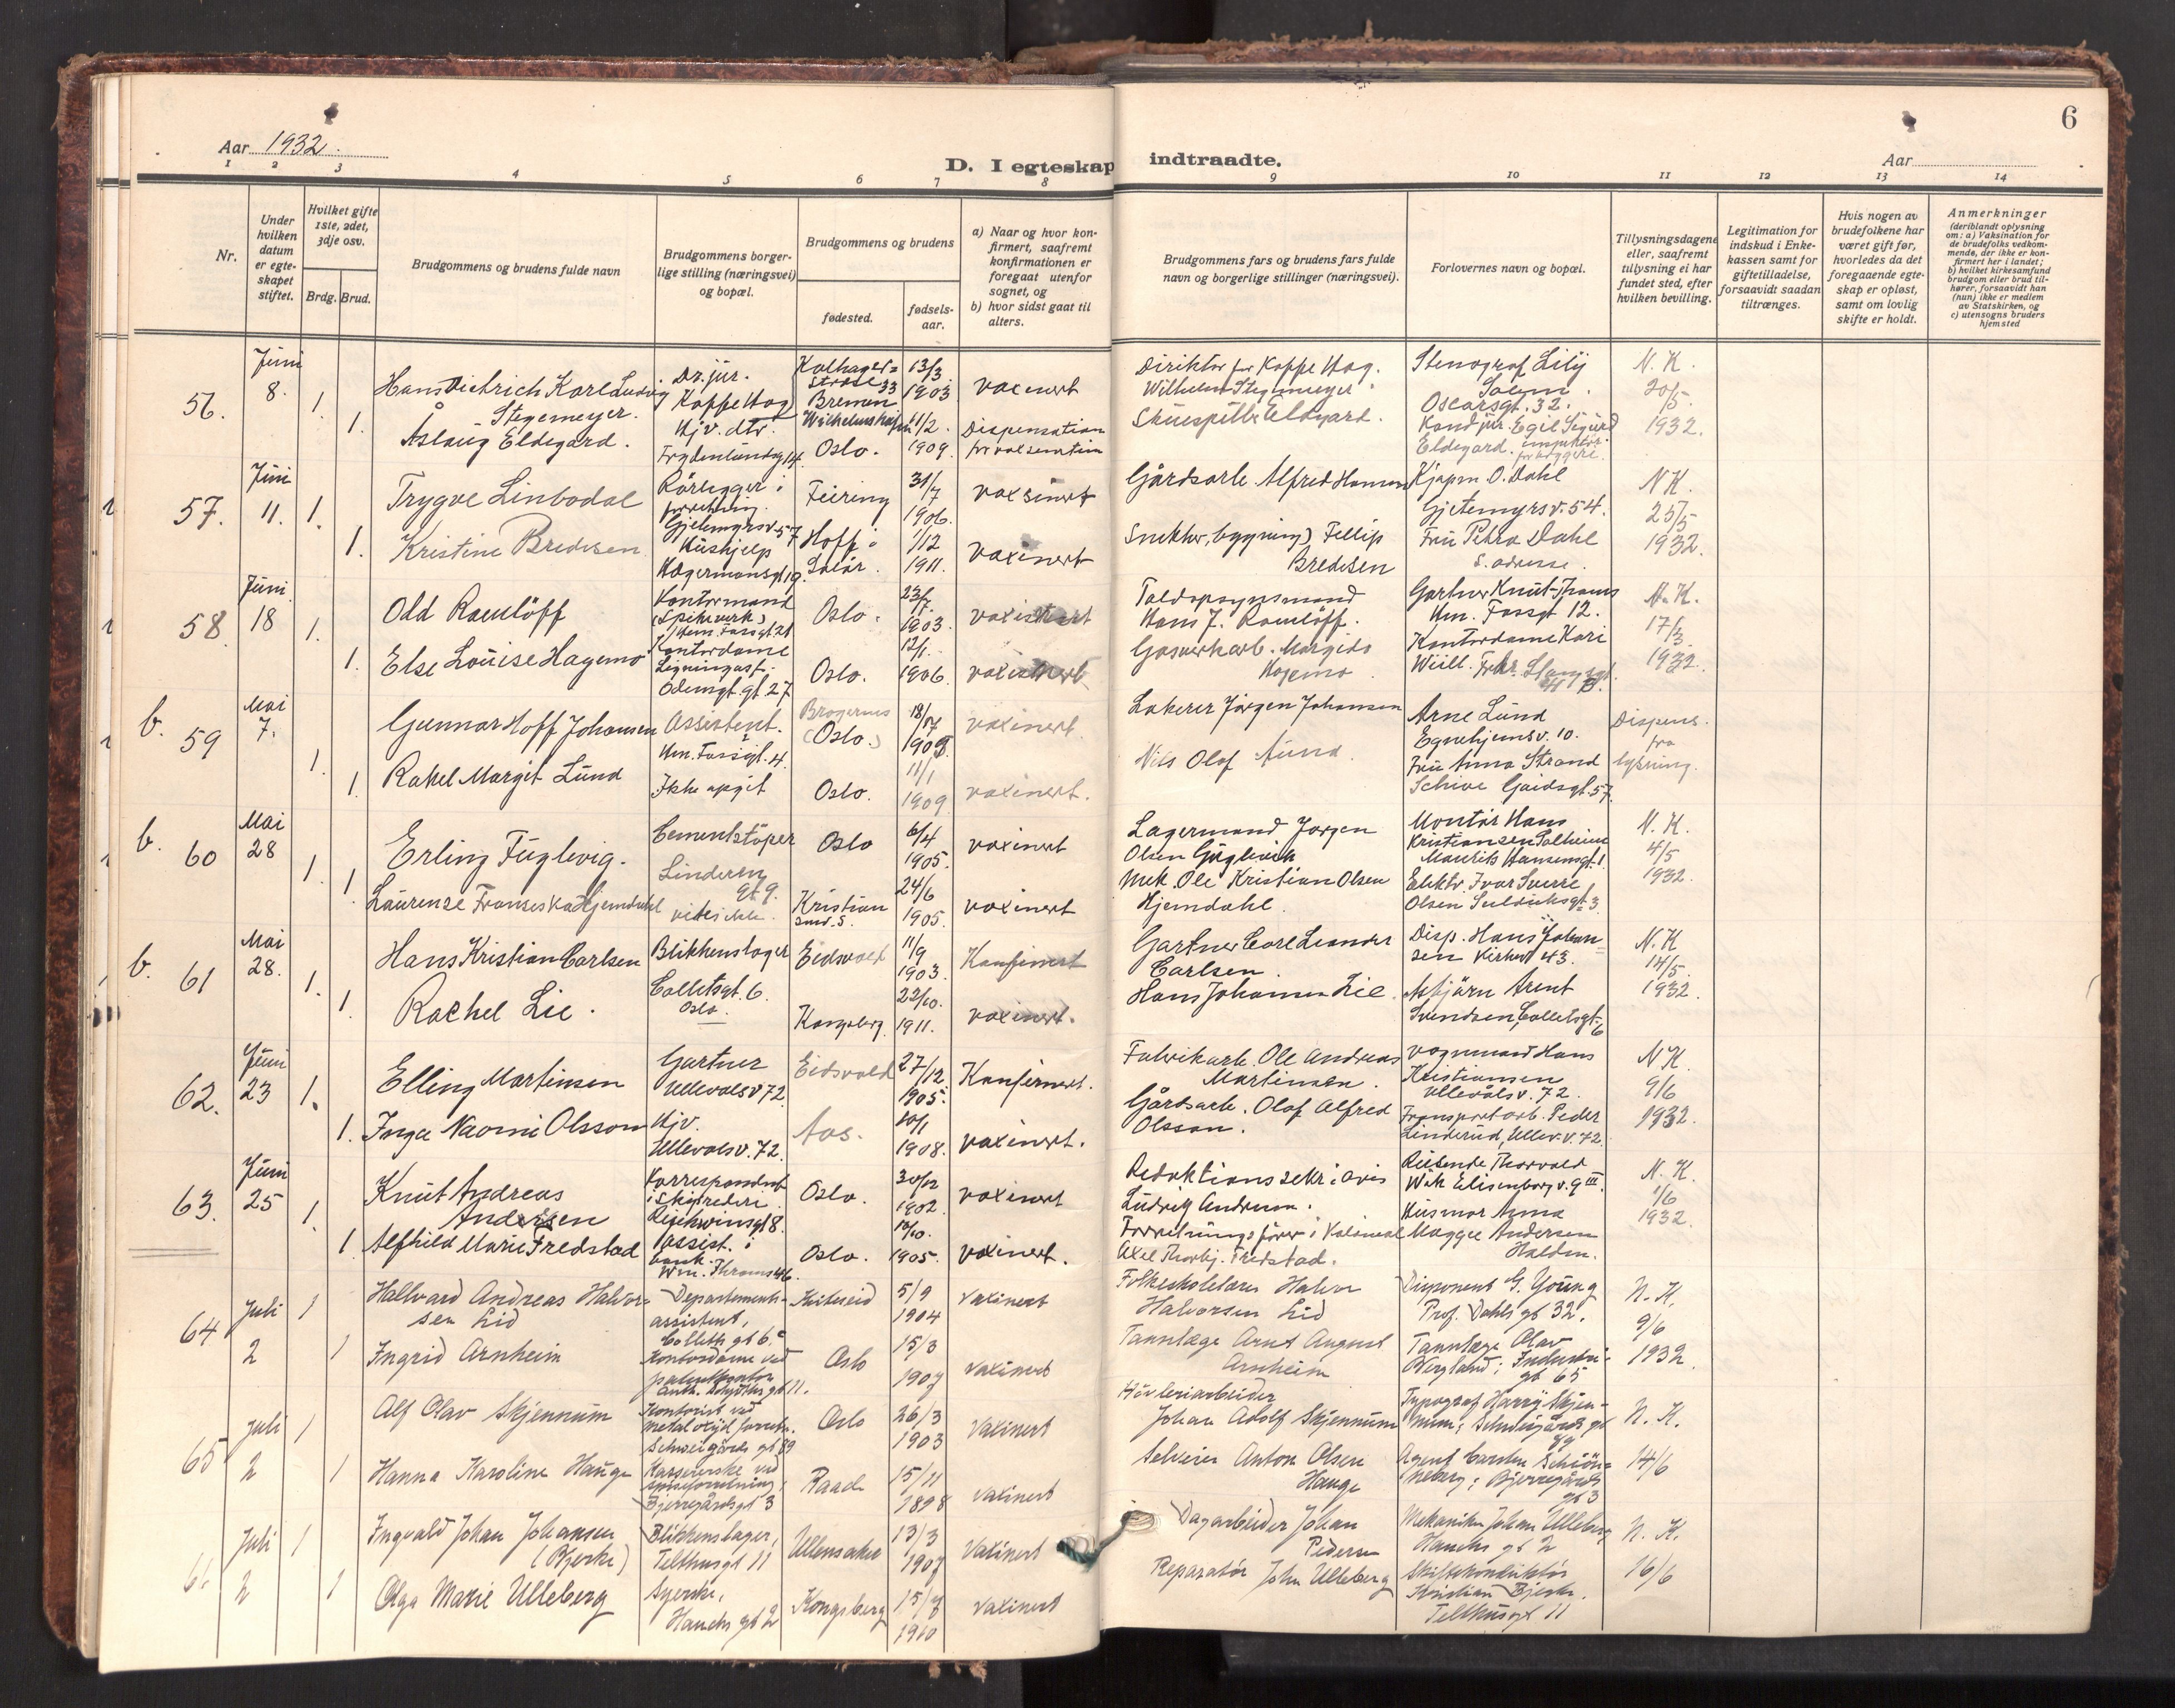 Aar 1932.
D. I egteskap indtraadte.
Aar
6
1 2 3 4 5 6 7 8 9 10 11 12 13 14
Nr.
Under hvilken datum er egte-skapet stiftet.
Hvilket gifte 1ste, 2det, 3dje osv.
Brdg. Brud.
Brudgommens og brudens fulde navn
Brudgommens borger-lige stilling (næringsvei) og bopæl.
Brudgommens og brudens
fødested.
fødsels-aar.
a) Naar og hvor kon-firmert, saafremt konfirmationen er foregaat utenfor sognet, og
b) hvor sidst gaat til alters.
Brudgommens fars og brudens fars fulde navn og borgerlige stillinger (næringsvei).
Forlovernes navn og bopæl.
Tillysningsdagene eller, saafremt tillysning ei har fundet sted, efter hvilken bevilling.
Legitimation for indskud i Enke-kassen samt for giftetilladelse, forsaavidt saadan tiltrænges.
Hvis nogen av brudefolkene har været gift før, hvorledes da det foregaaende egte-skap er opløst, samt om lovlig skifte er holdt.
Anmerkninger (deriblandt oplysning om: a) Vaksination for de brudefolks vedkom-mende, der ikke er kon-firmert her i landet; b) hvilket kirkesamfund brudgom eller brud til-hører, forsaavidt han (hun) ikke er medlem av Statskirken, og c) utensogns bruders hjemsted
56. Juni 8. 1.
Hans Diehrich Karl Ludvig Stegemeyer.
Dr. jur. Kaffe Hag
Bremen 13/3 1903
vaxinert
Direktør for Kaffe Hag. Wilhelm Stegemeyer
Stenograf Lily Solem. Oscarsgt. 32.
N. K. 20/5 1932.
1. Åslaug Eldegard.
Hj.v. dtr. Frydenlundsg 14
Oslo. 11/2. 1909.
Dispensation for vaksination
Skuespiller Eldegard.
Kand jur. Egil Sigurd Eldegard.
57. Juni 11. 1.
Trygve Linbodal
Rörlegger i forretning. Gjetemyrsv. 57
Feiring 31/7 1906.
vaxsinert
Gårdsarb. Alfred Hansen
Kjøpm. O. Dahl Gjetemyrsv. 54.
N K. 25/5 1932.
1. Kristine Bredesen
Hushjelp Hægermansgt 19.
Hoff i Solør. 1/12 1911.
vaxinert
Snekker, bygning) Fellip Bredesen
Fru Petra Dahl S. adresse.
58. Juni 18 1.
Odd Ramlöff
Kontormand (Spikerverk)
Oslo. 1903.
Toldopsynsmand Hans J. Ramlöff.
Gartner Knut Thams Hm. Fossgt 12.
N. K. 17/3 1932.
1. Else Louise Hagemo
Kontordame Ligningast. Odinsgt. 27
Oslo. 12/1. 1906.
Gasverkarb. Margido Hagemo.
Kontordame Kari
b. 59 Mai 7. 1.
Gunnar Hoff Johansen
Assistent. Hm. Fossgt. 4.
Bragernes (Oslo.)
vaxinert.
Lakerer Jørgen Johansen
Arne Lund Egnehjemsv. 10.
Dispens. fra lysning.
1. Rakel Margit Lund
Ikke opgit
Oslo. 11/1 1909
vaxinert.
Nils Olof Lund.
Fru Anna Strand
b. 60 Mai 28 1.
Erling Fuglevig.
Cementstöper
Oslo 6/4 1905.
vaxinert
Lagermand Jørgen Olsen
Montør Hans Kristiansen Solheim Maurits Hansensgt. 1
N. K. 4/5 1932.
1 Laurense Franseska Hjemdahl
Kristiansund. S. 24/6 1905.
vaxinert
Mek. Ole Kristian Olsen Hjemdahl.
Elektr. Ivar Sverre Olsen
b. 61 Mai 28. 1.
Hans Kristian Carlsen
Blikkenslager Colletsgt. 6. Oslo.
Eidsvold 11/9 1903.
Konfirmert
Gartner Carl Leander Carlsen.
Disp. Hans Johansen Kirkev 43.
N. K 14/5. 1932.
1. Rachel Lie.
Kongsberg. 22/10. 1911.
vaxinert.
Hans Johannes Lie.
Asbjörn Arent Svendsen, Colletsgt. 6
62. Juni 23 1.
Elling Martinsen
Gartner Ullevålsv 72
Eidsvold 27/12 1905.
Konfirmert.
Fabrikarb. Ole Andreas Martinsen.
Vognmand Hans Kristiansen Ullevålsv. 72.
N K. 9/6 1932.
1. Inga Naomi Olsson
Hjv. Ullevålsv. 72.
Aas. 1908.
vaxinert.
Gårdsarb. Olof Alfred Olsson.
Transportarb. Peder Linderud, Ullev. v. 72
63. Juni 25 1.
Knut Andreas Andersen
Korrespondent i Skipsrederi
Oslo. 30/12 1902.
vaxinert
Redaktionssekr. i avis Ludvig Andersen.
Reisende Thorvald Wik Elisenborgv. 9 III.
N. K. 1/6 1932.
1 Alfhild Marie Fredstad
Assist. i bank. Wm. Thranes 46.
Oslo. 10/10. 1905.
vaxinert.
Forretningsfører i Kolonial Axel Thorbj. Fredstad.
Husmor Anna Maggie Andersen Halden.
64 Juli 2 1
Hallvard Andreas Halvorsen Lid
Departements-assistent, Colletts gt 6.
Kviteseid 5/9 1904
Vaxinert
Folkeskolelærer Halvor Halvorsen Lid
Disponent G. Young Prof. Dahls gt 32.
N. K. 9/6 1932.
1 Ingrid Arnheim
Kontordame ved patentkontor
Oslo 15/3 1907
Vaxinert
Tannlæge Arnt August Arnheim
Tannlæge Olav Bergland; Industri-gt 65
65 Juli 2 1
Alf Olav Skjennum
Kontorist ved metaloxyd forretn. Schweigårds gt 89
Oslo 26/3 1903
Vaxinert
Høvleriarbeider Johan Adolf Skjennum
Typograf Harry Skjennum; Schweigårds gt 89
N. K. 14/6
1 Hanna Karoline Hauge
Kassererske ved spiseforretning; Bjerregårdsgt 3
Raade 15/11 1898
Vaxinert
Selveier Anton Olsen Hauge
Agent Carsten Schiöneberg; Bjerregårds gt 3
66 Juli 2 1
Ingvald Johan Johansen (Bjerke)
Blikkenslager, Telthusgt 11
Ullensaker 13/3 1907
Vaxinert
Dagarbeider Johan Pedersen
Mekaniker Johan Ulleberg Hauchs gt 2
N. K. 16/6
1 Olga Marie Ulleberg
Syerske, Hauchs gt 2
Kongsberg 1910
Vaxinert
Reparatør John Ulleberg
Skiftekonduktør Kristian Bjerke. Telthusgt 11